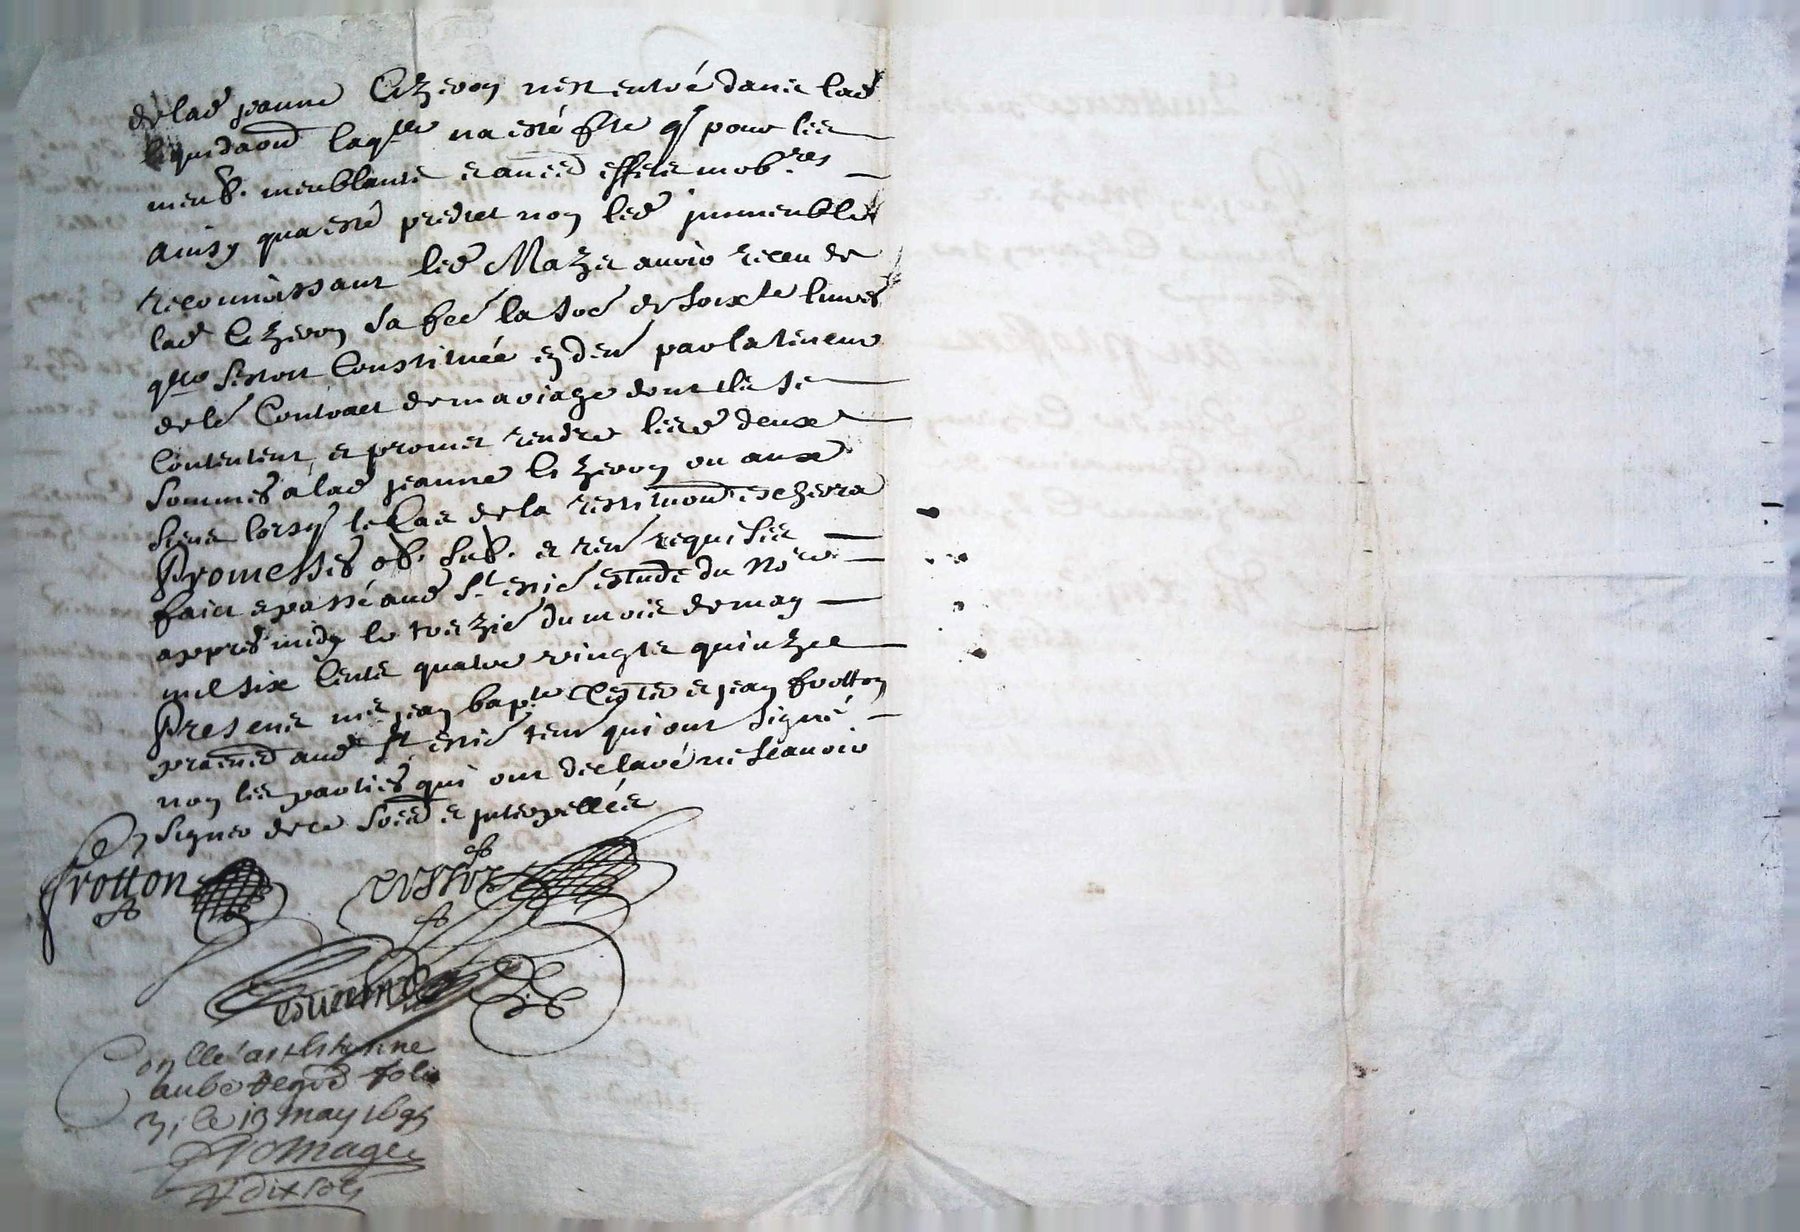 de lad jeanne Cizeron nest entré dans lad
liquidaon laqlle na esté fte q pour les
meub. meublants et aues effets mobres
ainsy qua esté predict non lesd immeubles
reconnoissant led Mazet avoir receu de
lad Cizeron sa fee la soe de soixte livres
qlle sestoit Constituée en den par la teneur
de le Contract de mariage dont ils se
Contentent et promet rendre lesd deux
sommes a lad jeanne Cizeron ou aux
siens lorsq le Cas de la restituon escherra
Promesses ob. sub. et ren requises
faict et passé aud St estne estude du Nore
appres midy le trezie du mois de may
mil six Cents quatre vingts quinze
Presens me jean bapte et jean frotton
praen aud St estne tem qui ont signé
non les parties qui ont declaré ne scavoir
signer de ce soe et interpellées
frotton

Conllé a st estienne
au be reg folio
31 le 13 may 1695
fromage
R dix sols